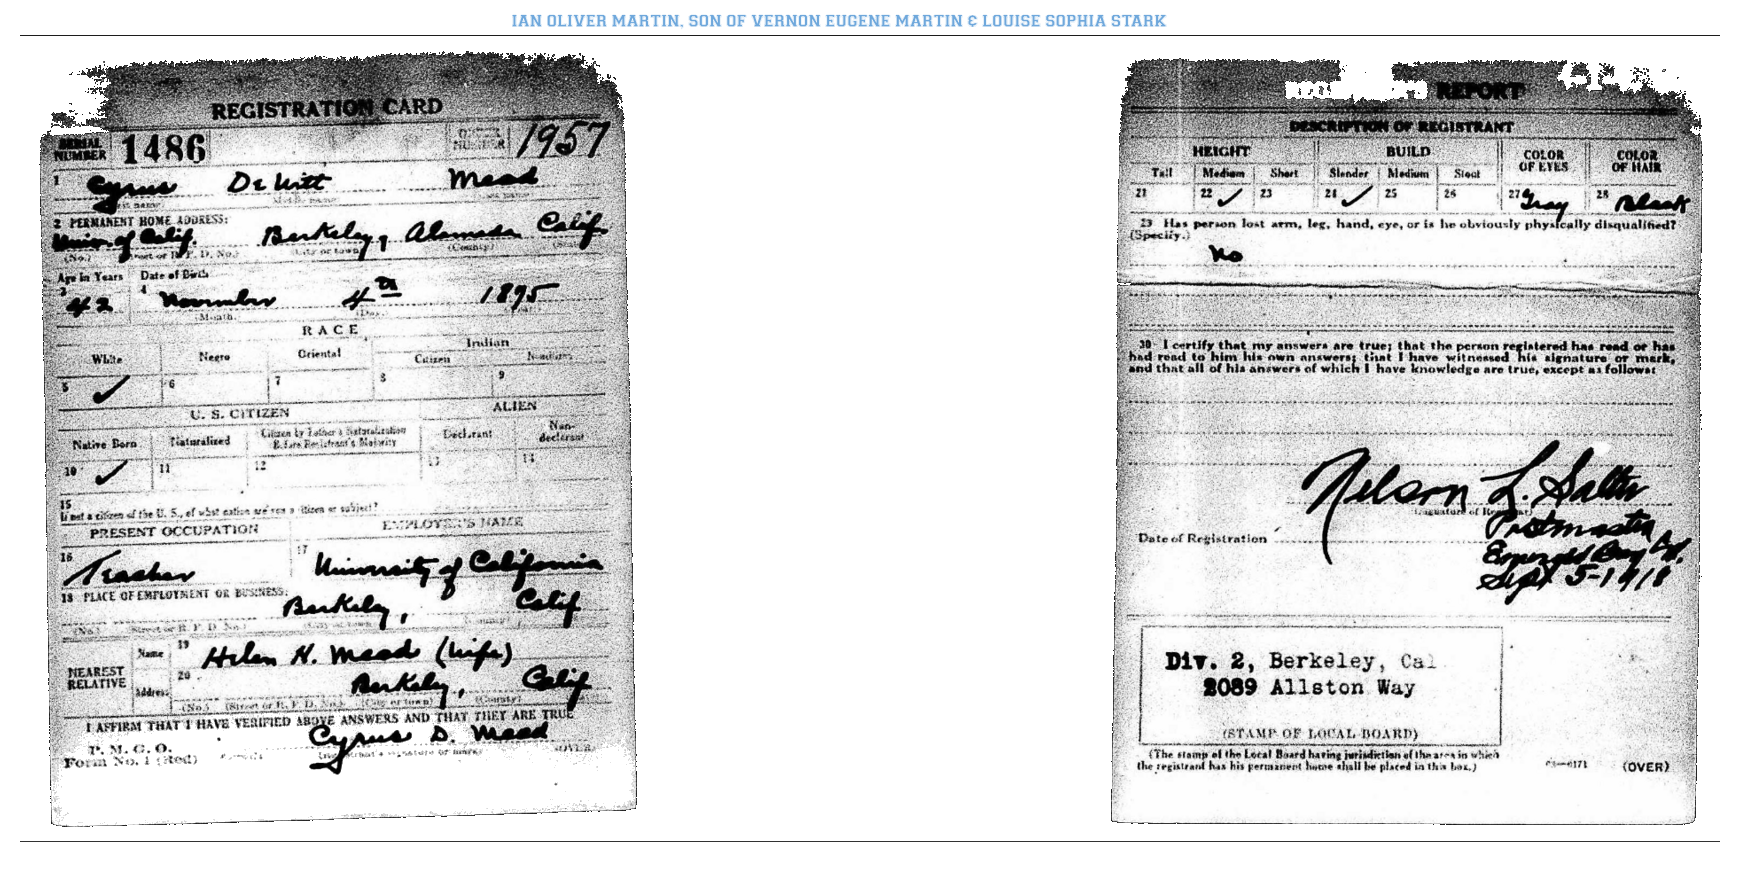 IAN OLIVER MARTIN, SON OF VERNON EUGENE MARTIN & LOUISE SOPHIA STARK
REGISTRATION CARD
SERIAL NUMBER 1486 ORDER NUMBER 1957
1 Cyrus DeWitt Mead
(First name) (Middle name) (Last name)
2 PERMANENT HOME ADDRESS:
Univ. of Calif. Berkeley, Alameda Calif.
(No.) (Street or R. F. D. No.) (City or town) (County) (State)
Age in Years Date of Birth
3 42 4 November 4th 1875
(Month.) (Day.) (Year.)
RACE
White Negro Oriental Indian
Citizen Noncitizen
5 ✓ 6 7 8 9
U. S. CITIZEN ALIEN
Native Born Naturalized Citizen by Father's Naturalization Before Registrant's Majority Declarant Non-declarant
10 ✓ 11 12 13 14
15
If not a citizen of the U. S., of what nation are you a citizen or subject?
PRESENT OCCUPATION EMPLOYER'S NAME
16 Teacher 17 University of California
18 PLACE OF EMPLOYMENT OR BUSINESS:
Berkeley, Calif
(No.) (Street or R. F. D. No.) (City or town) (County)
NEAREST RELATIVE Name 19 Helen N. Mead (wife)
Address 20 Berkeley, Calif
(No.) (Street or R. F. D. No.) (City or town) (County)
I AFFIRM THAT I HAVE VERIFIED ABOVE ANSWERS AND THAT THEY ARE TRUE
P. M. G. O.
Form No. 1 (Red) Cyrus D. Mead
(Registrant's signature or mark) (OVER)
REPORT
DESCRIPTION OF REGISTRANT
HEIGHT BUILD COLOR OF EYES COLOR OF HAIR
Tall Medium Short Slender Medium Stout
21 22 ✓ 23 24 ✓ 25 26 27 Gray 28 Black
29 Has person lost arm, leg, hand, eye, or is he obviously physically disqualified?
(Specify.)
No
30 I certify that my answers are true; that the person registered has read or has
had read to him his own answers; that I have witnessed his signature or mark,
and that all of his answers of which I have knowledge are true, except as follows:
Nelson L. Salter
(Signature of Registrar)
Postmaster
Date of Registration Emerald Bay Cal.
Sept 5-1918
Div. 2, Berkeley, Cal
2089 Allston Way
(STAMP OF LOCAL BOARD)
(The stamp of the Local Board having jurisdiction of the area in which
the registrant has his permanent home shall be placed in this box.)
03—6171 (OVER)